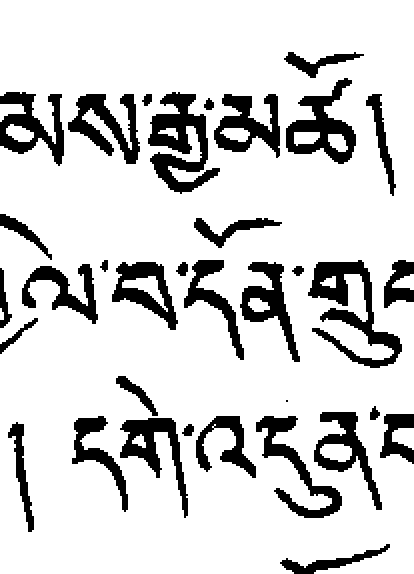 མས་རྒྱ་མཚོ།
ལེ་བ་དོན་གྲུབ
། དགེ་འདུན་